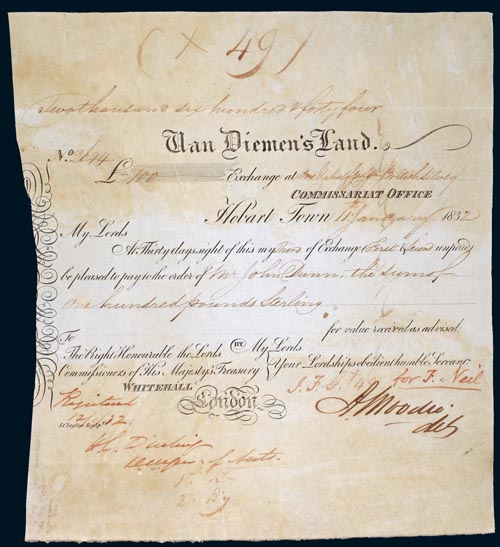 (X 49)
Two thousand six hundred & forty four
Van Diemen's Land.
No. 2644
£ 100 Exchange at
COMMISSARIAT OFFICE
Hobart Town 11 January 1832
My Lords
At Thirty days sight of this my of Exchange First & Second unpaid
be pleased to pay to the order of Mr John Dunn, the Sum of
One hundred pounds Sterling
for value received as advised
To
The Right Honourable the Lords BY My Lords
Commissioners of His Majesty's Treasury Your Lordships obedient humble Servant
WHITEHALL
London
for F. Neil
Registered
32
A Moodie
of Accts